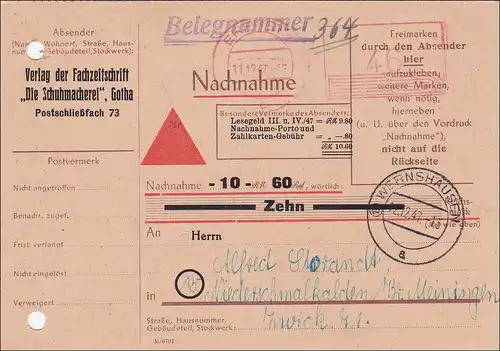 Absender
(Name, Wohnort, Straße, Haus-
nummer, Gebäudeteil, Stockwerk):
Verlag der Fachzeitschrift
„Die Schuhmacherei", Gotha
Postschließfach 73
Postvermerk
Nicht angetroffen
Benachr. zugef.
Frist verlangt
Nicht eingelöst
Verweigert
Belegnummer 364
11.12.47.-15
46
Nachnahme
Nr.
Besondere Vermerke des Absenders:
Lesegeld III. u. IV./47 = RM 9.80
Nachnahme-Porto und
Zahlkarten-Gebühr = „ —.80
RM 10.60
Freimarken
durch den Absender
hier
aufzukleben,
weitere Marken,
wenn nötig,
hierneben
(u. U. über den Vordruck
„Nachnahme"),
nicht auf die
Rückseite
Nachnahme -10- RM 60 Rpf, wörtlich:
Zehn
(wie oben)
WERNSHAUSEN
12.47.-15
a
An Herrn
Alfred Storandt
in Niederschmalkalden Kr. Meiningen
Straße, Hausnummer,
Gebäudeteil, Stockwerk: